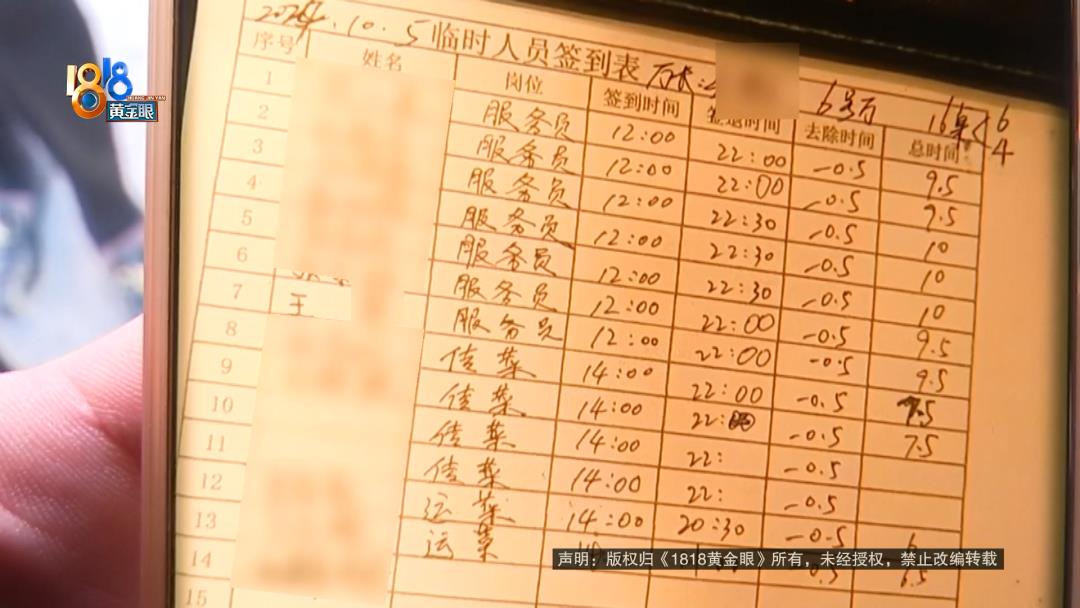 1818
HUANG JIN YAN
黄金眼
2024.10.5 临时人员签到表 6号厅 16桌 6 4
序号 姓名 岗位 签到时间 签退时间 去除时间 总时间
1 服务员 12:00 22:00 -0.5 9.5
2 服务员 12:00 22:00 -0.5 9.5
3 服务员 12:00 22:30 -0.5 10
4 服务员 12:00 22:30 -0.5 10
5 服务员 12:00 22:30 -0.5 10
6 服务员 12:00 22:00 -0.5 9.5
7 王 服务员 12:00 22:00 -0.5 9.5
8 传菜 14:00 22:00 -0.5 7.5
9 传菜 14:00 22: -0.5 7.5
10 传菜 14:00 22: -0.5
11 传菜 14:00 22: -0.5
12 运菜 14:00 20:30 -0.5 6
13 运菜 -0.5 6.5
14
15
声明：版权归《1818黄金眼》所有，未经授权，禁止改编转载